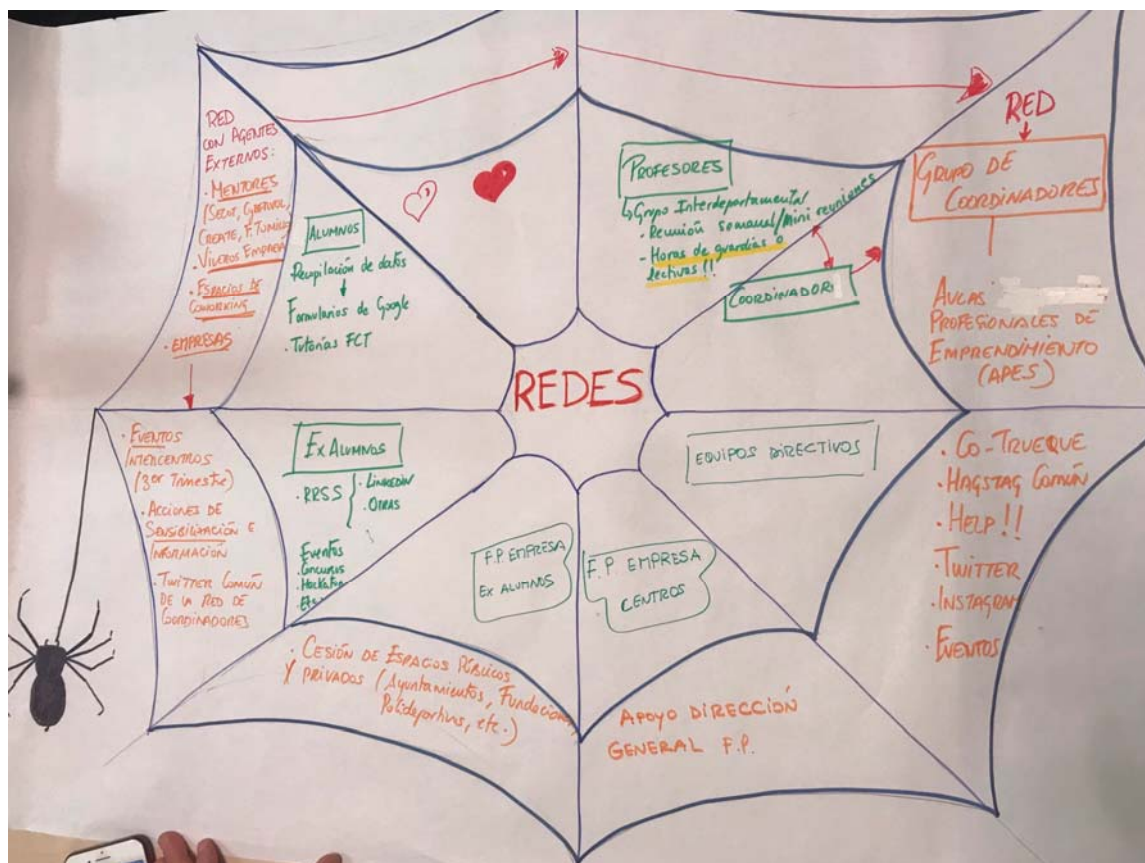 RED
CON AGENTES
EXTERNOS:
· MENTORES
(SECOT,
CREATE,
· VIVEROS
· ESPACIOS DE
COWORKING
· EMPRESAS
ALUMNOS
Recopilación de datos
Formularios de Google
· Tutorías FCT
PROFESORES
Grupo Interdepartamental
· Reunión semanal/mini reuniones
- Horas de guardias o
lectivas!!
COORDINADOR
RED
GRUPO DE
COORDINADORES
AULAS
PROFESIONALES DE
EMPRENDIMIENTO
(APES)
REDES
· EVENTOS
INTERCENTROS
(3er Trimestre)
· ACCIONES DE
SENSIBILIZACIÓN E
INFORMACIÓN
· TWITTER COMÚN
DE LA RED DE
COORDINADORES
EX ALUMNOS
· RRSS { · LINKEDIN
· OTRAS
Eventos
· Concursos
· Hackaton
Etc
EQUIPOS DIRECTIVOS
F.P. EMPRESA
EX ALUMNOS
F.P. EMPRESA
CENTROS
· CO-TRUEQUE
· HAGSTAG COMÚN
· HELP!!
· TWITTER
· INSTAGRAM
· EVENTOS
· CESIÓN DE ESPACIOS PÚBLICOS
Y PRIVADOS (Ayuntamientos, Fundaciones,
Polideportivos, etc.)
APOYO DIRECCIÓN
GENERAL F.P.